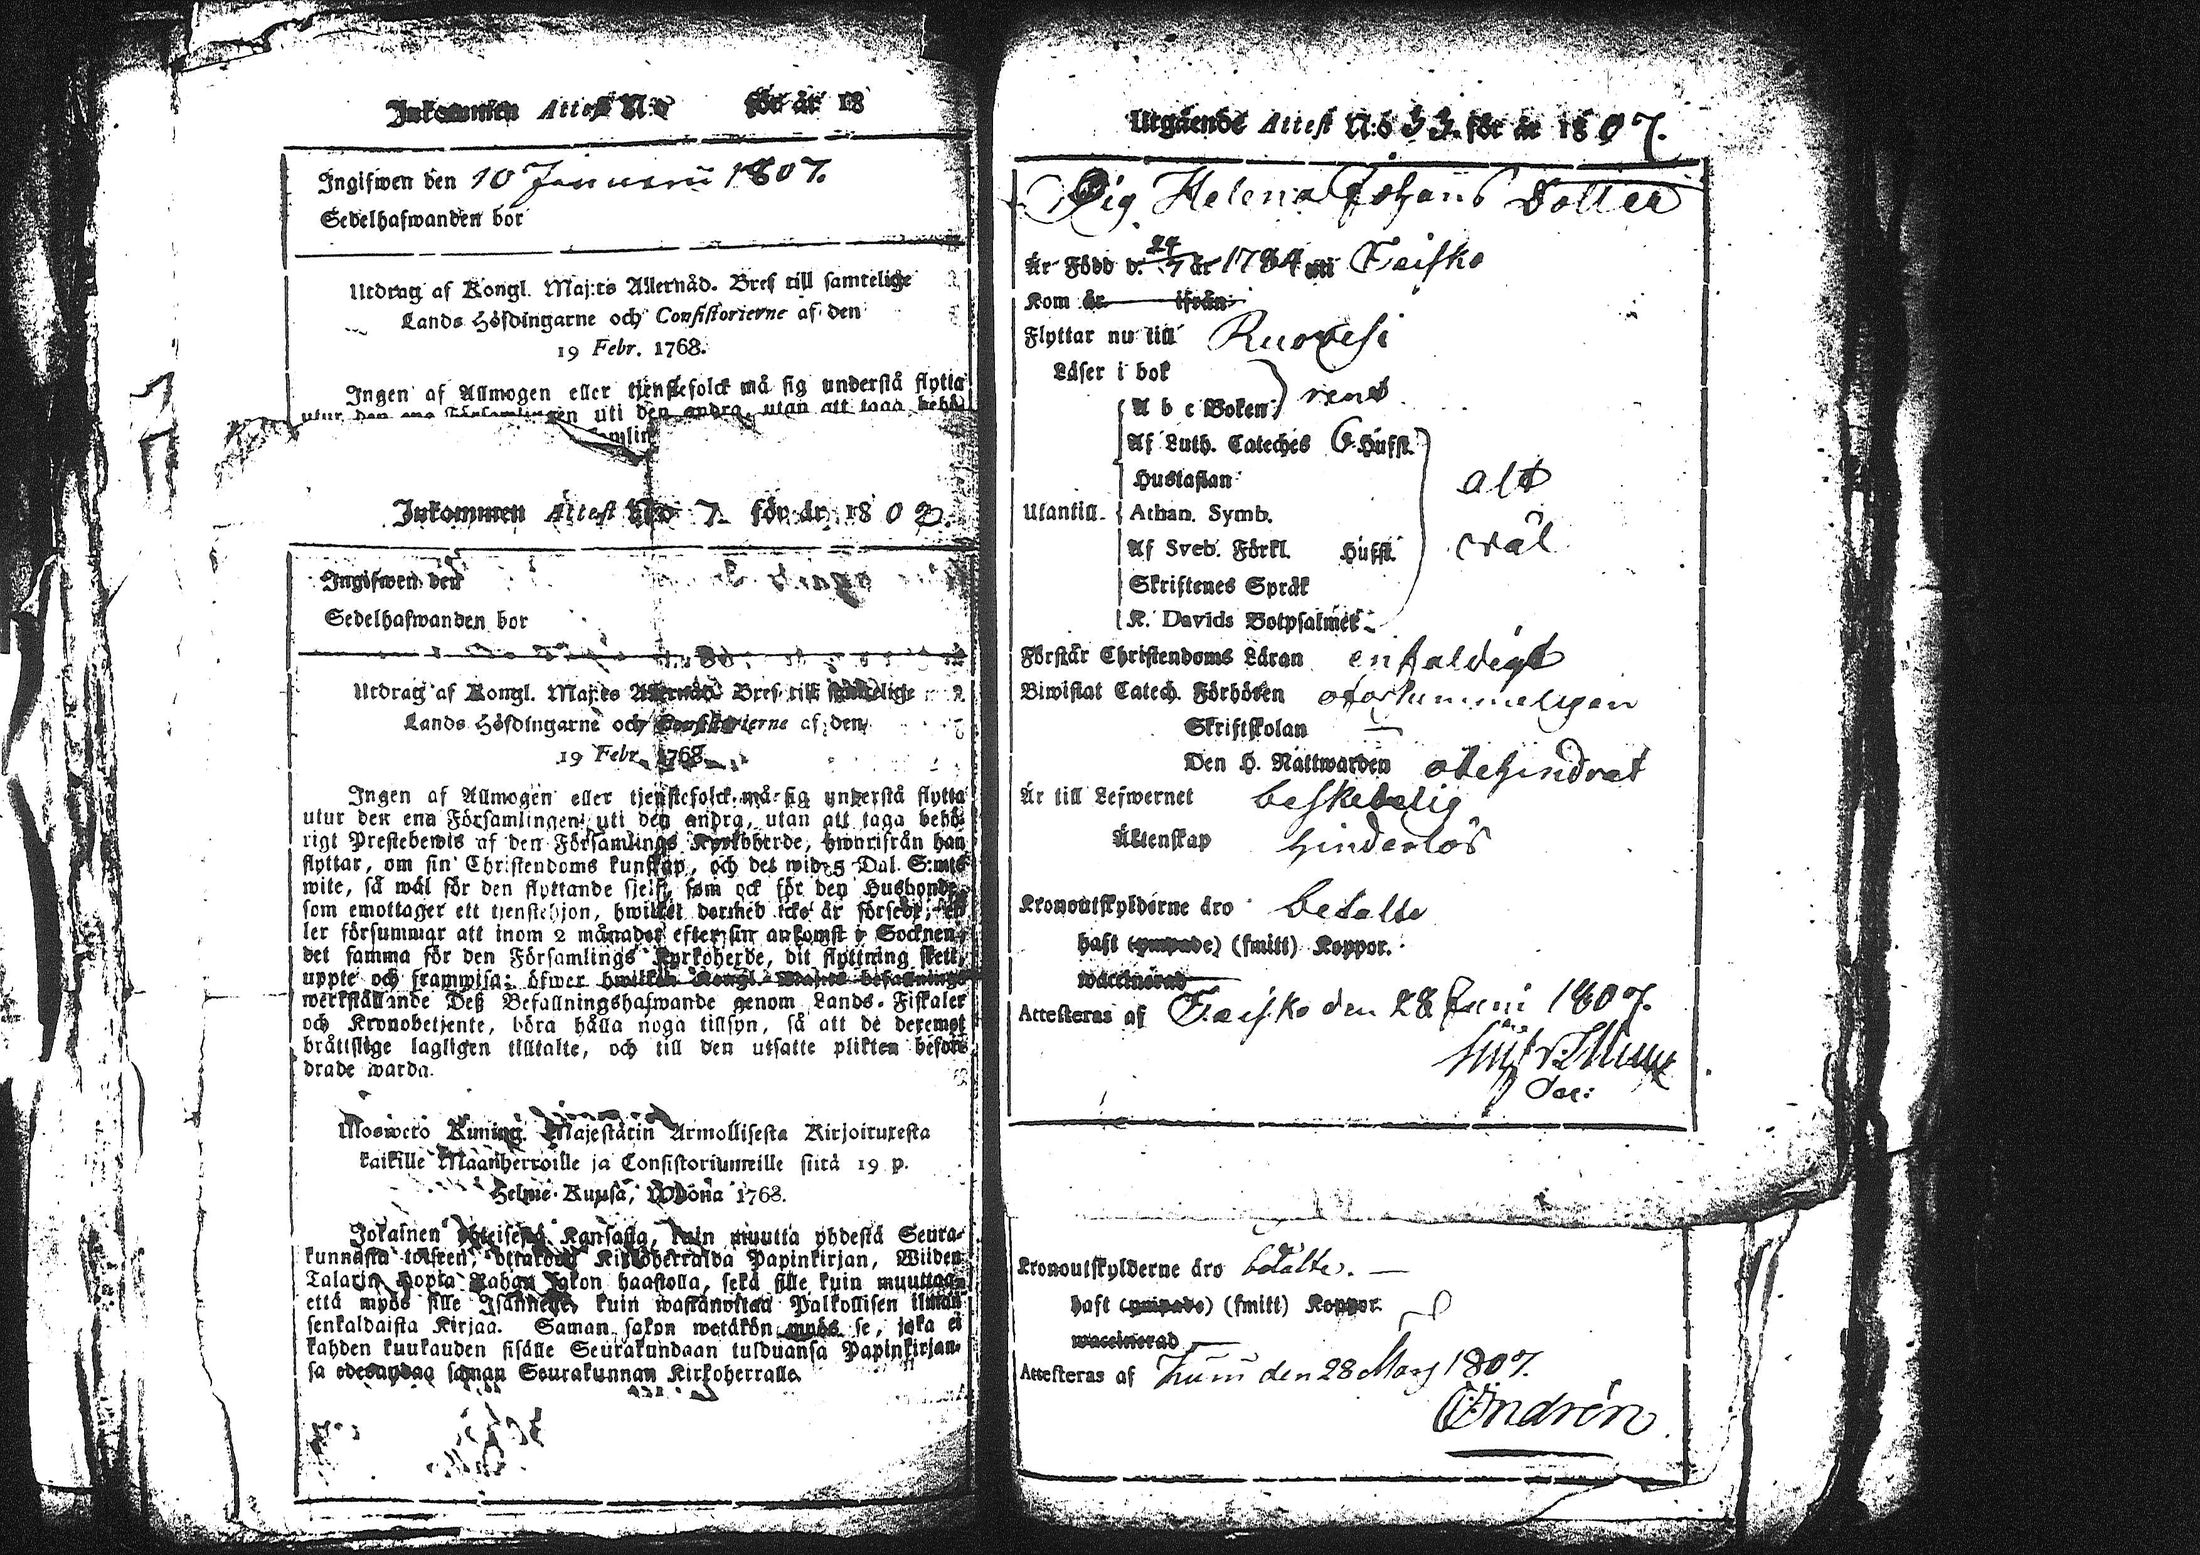 Inkommen Attest N:o för år 18
Ingifwen den 10 Januarii 1807.
Sedelhafwanden bor
Utdrag af Kongl. Maj:ts Allernåd. Bref till samtelige
Lands Höfdingarne och Consistorierne af den
19 Febr. 1768.
Ingen af Allmogen eller tjenstefolck må sig understå flytta
utur den ena Församlingen uti den andra, utan att taga behö-
Inkommen Attest N:o 7. för år 180
Ingifwen den
Sedelhafwanden bor
Utdrag af Kongl. Maj:ts Allernåd. Bref till samtelige
Lands Höfdingarne och Consistorierne af den
19 Febr. 1768.
Ingen af Allmogen eller tjenstefolck må sig understå flytta
utur den ena Församlingen uti den andra, utan att taga behö-
rigt Prestebewis af den Församlings Kyrkoherde, hwarifrån han
flyttar, om sin Christendoms kunskap, och det wid 5 Dal. S:mts
wite, så wäl för den flyttande sjelf, som ock för den Husbonde,
som emottager ett tjenstehjon, hwilket dermed icke är försedt, el-
ler försummar att inom 2 månader efter sin ankomst i Socknen,
det samma för den Församlings Kyrkoherde, dit flyttning skett,
uppte och framwisa; öfwer hwilken Kongl. Maj:ts befallnings
werkställande Deß Befallningshafwande genom Lands-Fiskaler
och Kronobetjente, böra hålla noga tillsyn, så att de deremot
bråttslige lagligen tilltalte, och till den utsatte plikten befor-
drade warda.
Uloswetö Kuning. Majestätin Armollisesta Kirjoituxesta
kaikille Maanherroille ja Consistoriumeille siitä 19 p.
Helmi-Kuusa, Wuonna 1768.
Jokainen Yhteisestä Kansasta, kuin muutta yhdestä Seura-
kunnasta toiseen, ottakoon Kirkoherralda Papinkirjan, Wiiden
Talarin Hopia Rahan sakon haastolla, sekä sille kuin muuttaa,
että myös sille Isännelle, kuin wastanottaa Palkollisen ilman
senkaldaista Kirjaa. Saman sakon wetäkön myös se, joka ei
kahden kuukauden sisälle Seurakundaan tulduansa Papinkirjan-
sa edesandaa saman Seurakunnan Kirkoherralle.
Utgående Attest N:o 33. för år 1807.
Pig. Helena Johans Dotter
Är Född d. 24/7 år 1784 uti Teisko
Kom år ifrån
Flyttar nu till Ruovesi
Läser i bok
A b c Boken rent
Af Luth. Cateches 6 Hufst.
Hustaflan alt
Utantill Athan. Symb.
Af Sveb. Förkl. Hufst. väl
Skriftenes Språk
K. Davids Botpsalmer
Förstår Christendoms Läran enfaldigt
Biwistat Catech. Förhören oförsummeligen
Skriftskolan —
Den H. Nattwarden obehindrat
Är till Lefwernet beskedelig
Äktenskap hinderlös
Kronoutskylderne äro betalte
haft (ympade) (smitt) Koppor.
waccinerad
Attesteras af Teisko den 28 Juni 1807.
Kronoutskylderne äro betalte. —
haft (ympade) (smitt) Koppor.
waccinerad
Attesteras af den 28 Mars 1807.